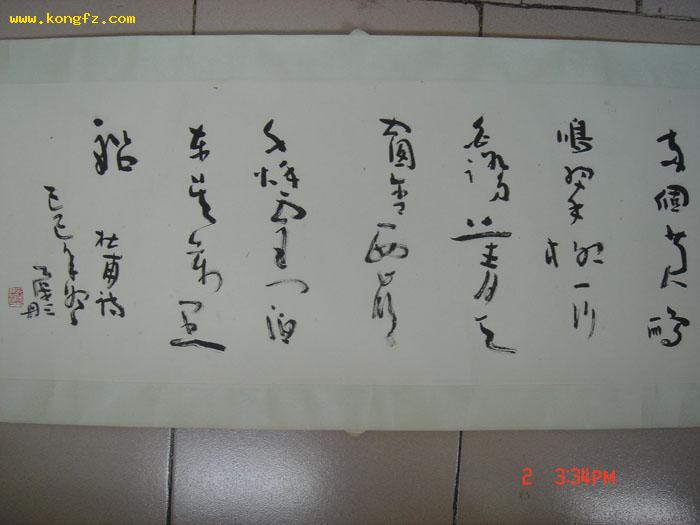 www.kongfz.com
两個黄鹂
鳴翠柳一行
白鹭上青天
窗含西岭
千秋雪门泊
东吴万里
船 杜甫诗
己巳年
2 3:34PM